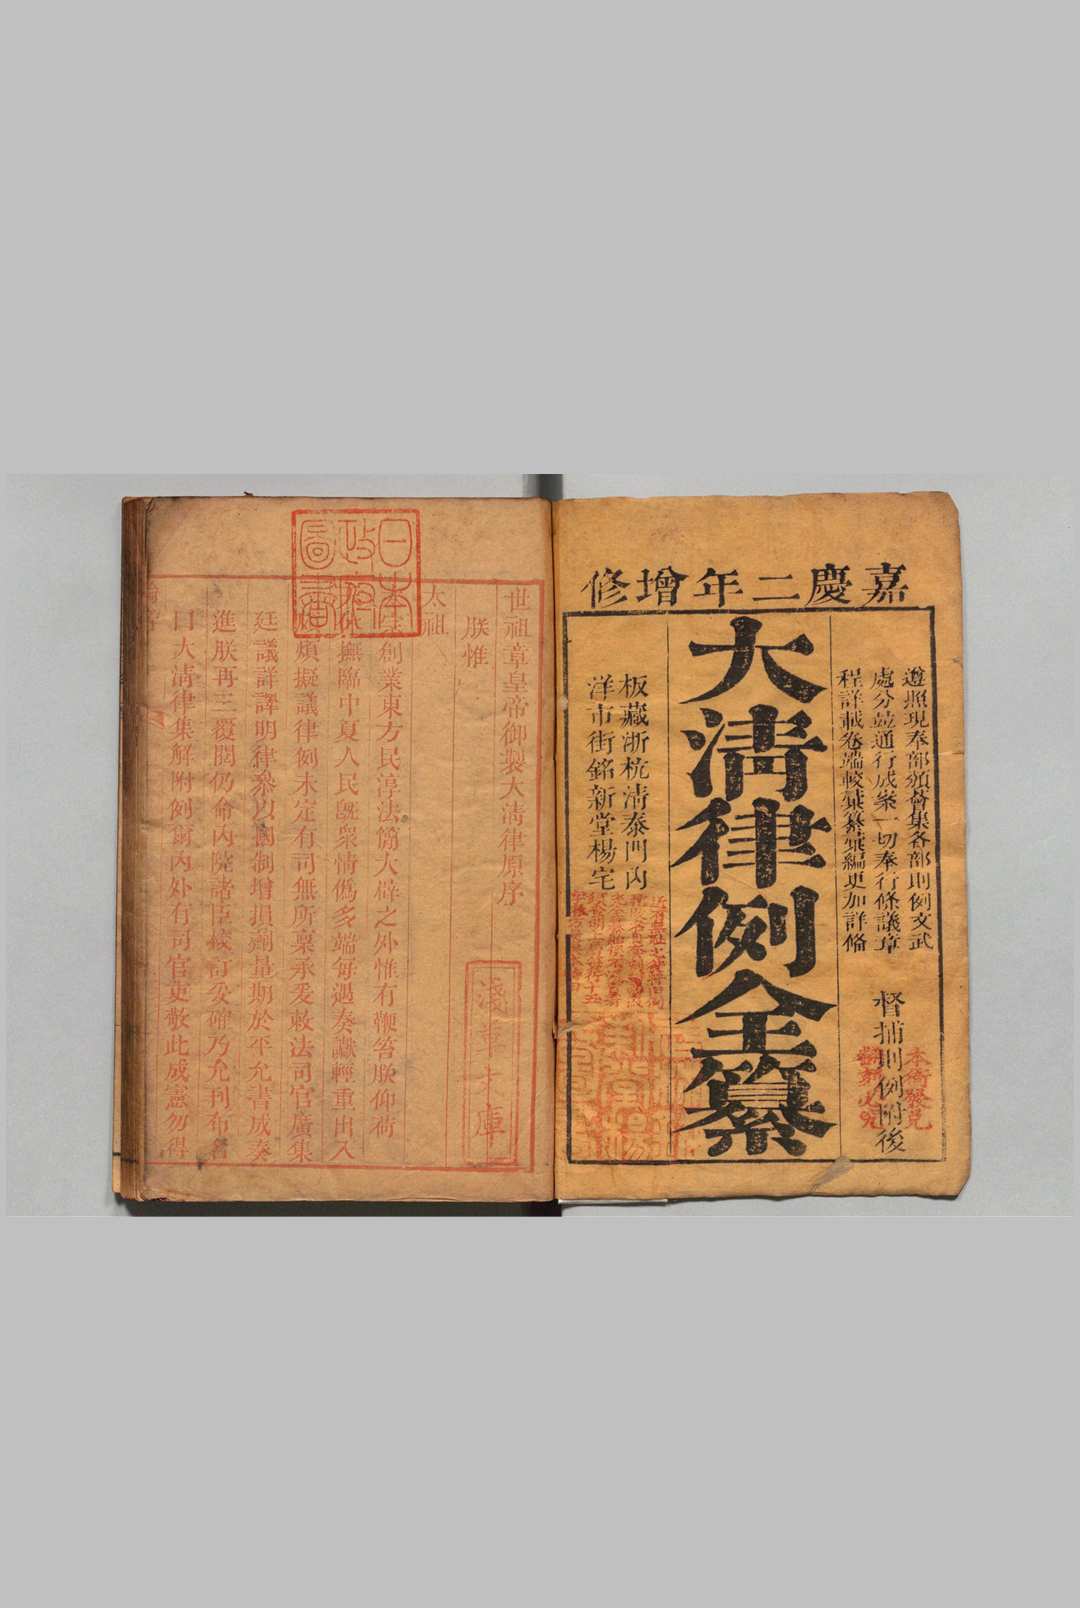 嘉慶二年增修
遵照現奉部頒薈集各部則例文武
處分並通行成案一切奉行條議章
程詳載卷端較彙纂彙編更加詳脩
督捕則例附後
本衙發兌
翻刻必究
大清律例全纂
板藏浙杭清泰門內
洋市街銘新堂楊宅
世祖章皇帝御製大清律原序
朕惟
太祖
創業東方民淳法簡大辟之外惟有鞭笞朕仰荷
撫臨中夏人民既衆情僞多端每遇奏讞輕重出入
煩擬議律例未定有司無所稟承爰敕法司官廣集
廷議詳譯明律參以國制增損劑量期於平允書成奏
進朕再三覆閱仍命內院諸臣校訂妥確乃允刊布名
曰大清律集解附例爾內外有司官吏敬此成憲勿得
日本政府圖書
淺草文庫